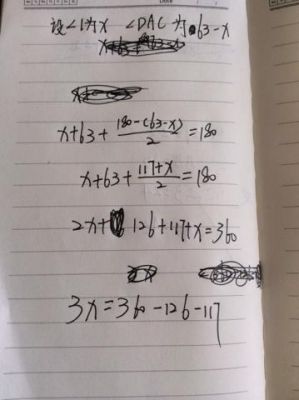 设∠1为x ∠DAC为63-x
x+63+\frac{180-(63-x)}{2}=180
x+63+\frac{117+x}{2}=180
2x+126+117+x=360
3x=360-126-117